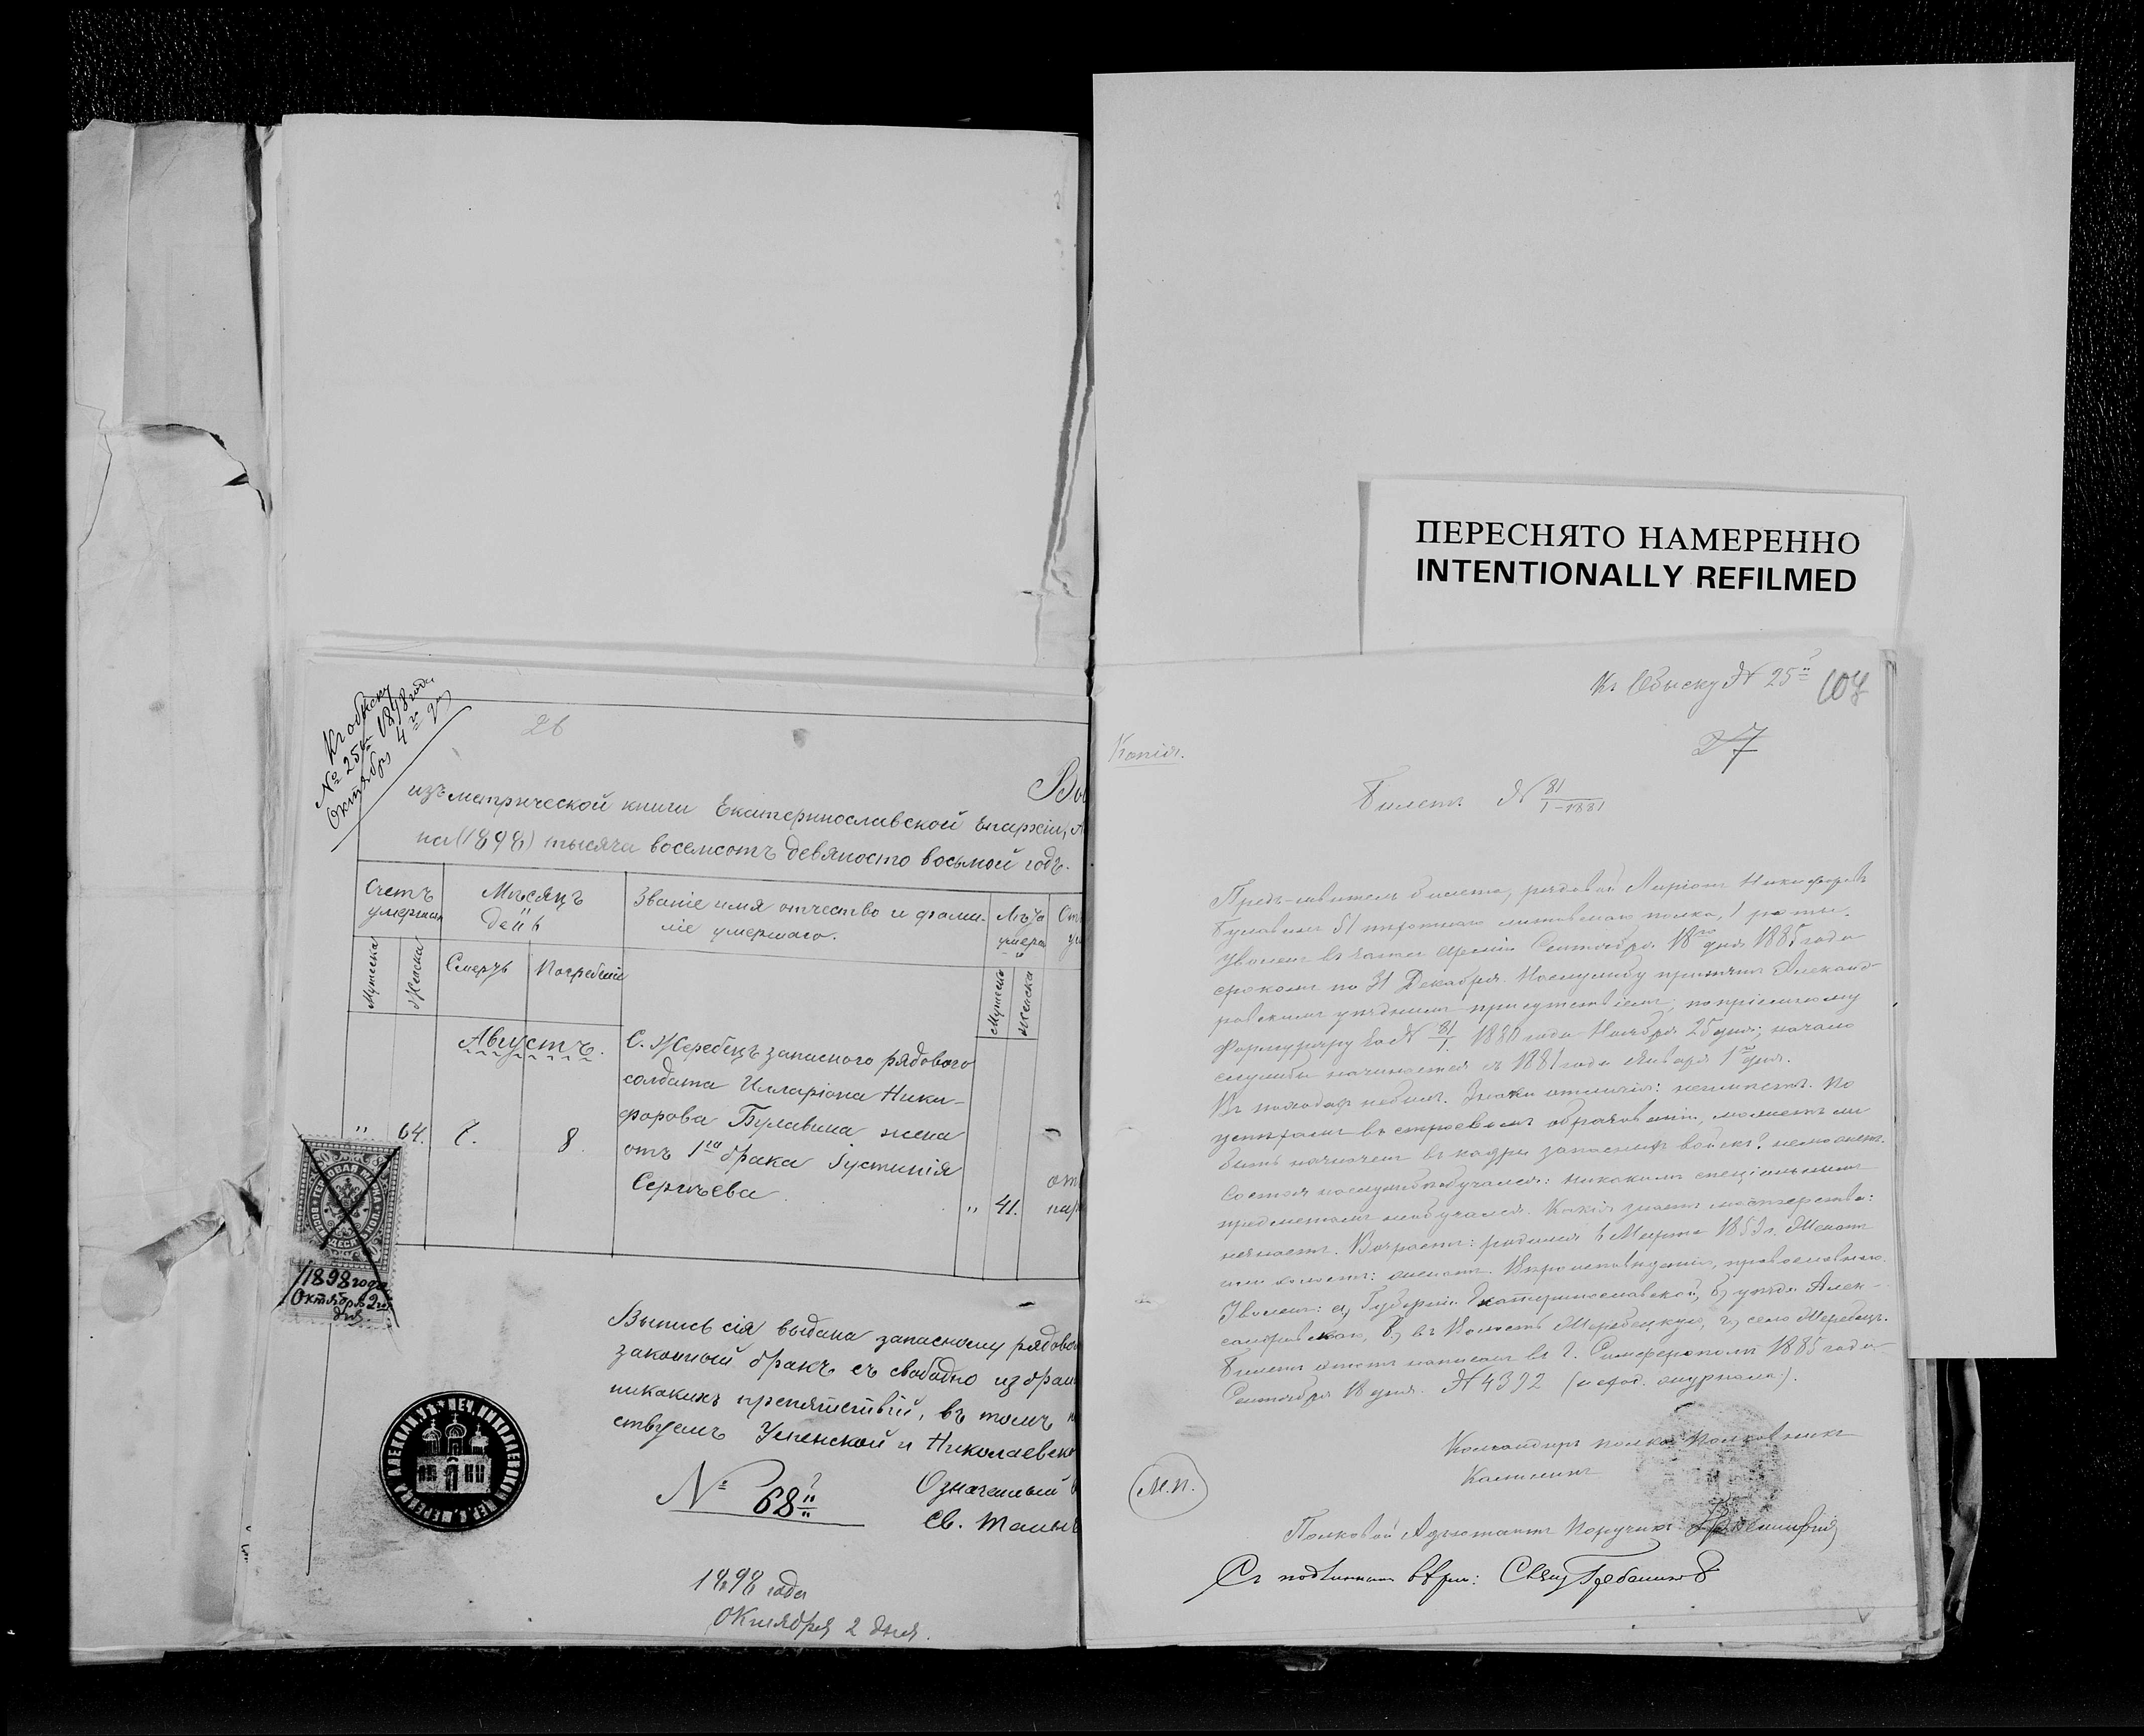 Къ обыску
№ 25й 1898 года
Октября 4го дня
26
Вы
изъ метрической книги Екатеринославской Епархіи, А
на (1898) тысяча восемсотъ девяносто восьмой годъ.
Счетъ умершихъ
Мѣсяцъ день
Званіе имя отчество и фами-
ліе умершаго.
Лѣта умера
Мужеска Женска
Смерть Погребенія
Мужеска Женска
Августъ.
" 64. 6. 8.
С. Жеребецъ запасного рядового
солдата Илларіона Ники-
форова Булавина жена
отъ 1го брака Іустинія
Сергѣева
" 41.
1898 года
Октября 2го
дня
Выпись сія выдана запасному рядово
законный бракъ съ свободно избран
никакихъ препятствій, въ томъ
ствуемъ Успенской и Николаевско
№ 68й
Означенный
Св. Таинъ
1898 года
Октября 2 дня.
ПЕРЕСНЯТО НАМЕРЕННО
INTENTIONALLY REFILMED
Къ Обыску № 25й
107
27
Копія.
Билетъ № 81/1-1881
Предъявитель билета, рядовой Ларіонъ Никифоровъ
Булавинъ 51 пѣхотнаго литовскаго полка, 1 роты.
Уволенъ въ запасъ арміи Сентября 18го дня 1885 года
срокомъ по 31 Декабря. На службу принятъ Александ-
ровскимъ уѣзднымъ присутствіемъ; по пріемному
формуляру за № 81/1. 1880 года Ноября 25 дня; начало
службы начинается съ 1881 года Января 1го дня.
Въ походахъ не былъ. Знаки отличія: неимѣетъ. По
успѣхамъ въ строевомъ образованіи, можетъ ли
быть назначенъ въ кадры запасныхъ войскъ? неможетъ.
Состоя на службѣ обучался: никакимъ спеціальнымъ
предметамъ необучался. Какія знаетъ мастерства:
незнаетъ. Возрастъ: родился 6 Марта 1859 г. Женатъ
или холостъ: женатъ. Вѣроисповѣданія, православнаго.
Уволенъ: а) Губерніи Екатеринославской, б) уѣзда Алек-
сандровскаго, в) въ Волость Жеребецкую, г) село Жеребецъ.
Билетъ этотъ написанъ въ г. Симферополѣ 1885 года
Сентября 18 дня. № 4392 (исход. журнала).
Командиръ полка Полковникъ
М.П.
Полковой Адъютантъ Поручикъ
Съ подлиннымъ вѣрно: